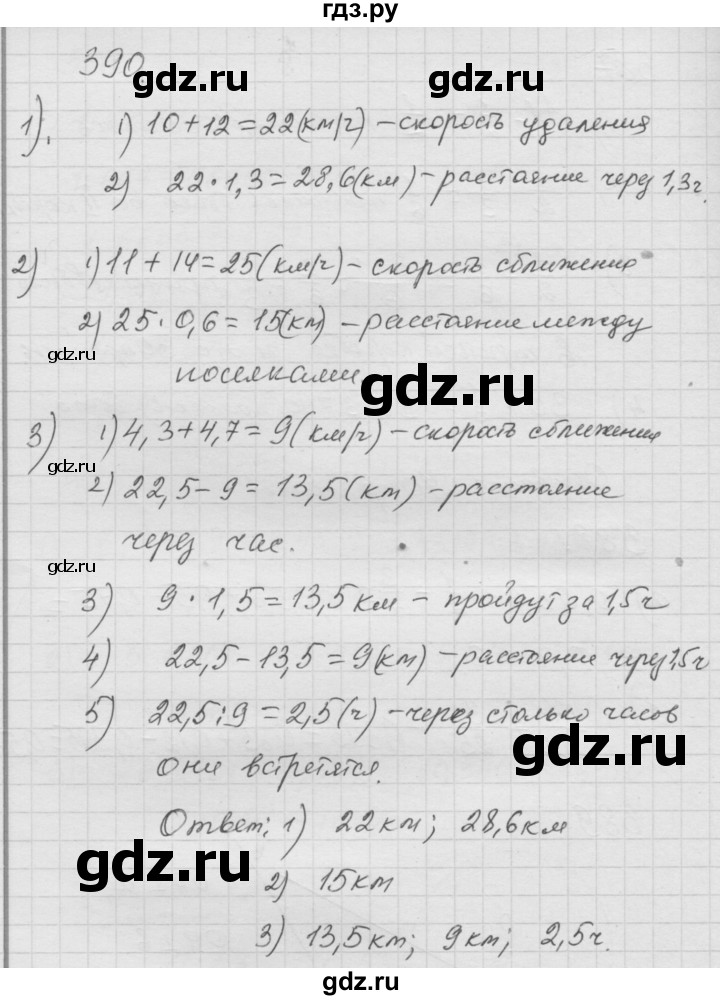 гдз.ру
390.
gdz.ru
1). 1) 10+12=22(км/ч) – скорость удаления
gdz.ru
2) 22·1,3=28,6(км) – расстояние через 1,3ч.
2) 1) 11+14=25(км/ч) – скорость сближения
2) 25·0,6=15(км) – расстояние между
gdz.ru
поселками
gdz.ru
3) 1) 4,3+4,7=9(км/ч) – скорость сближения
2) 22,5–9=13,5(км) – расстояние
через час.
gdz.ru
3) 9·1,5=13,5км – пройдут за 1,5ч
4) 22,5–13,5=9(км) – расстояние через 1,5ч
5) 22,5:9=2,5(ч) – через столько часов
они встретятся.
gdz.ru
Ответ: 1) 22км; 28,6км
gdz.ru
2) 15км
3) 13,5км; 9км; 2,5ч.
gdz.ru
gdz.ru